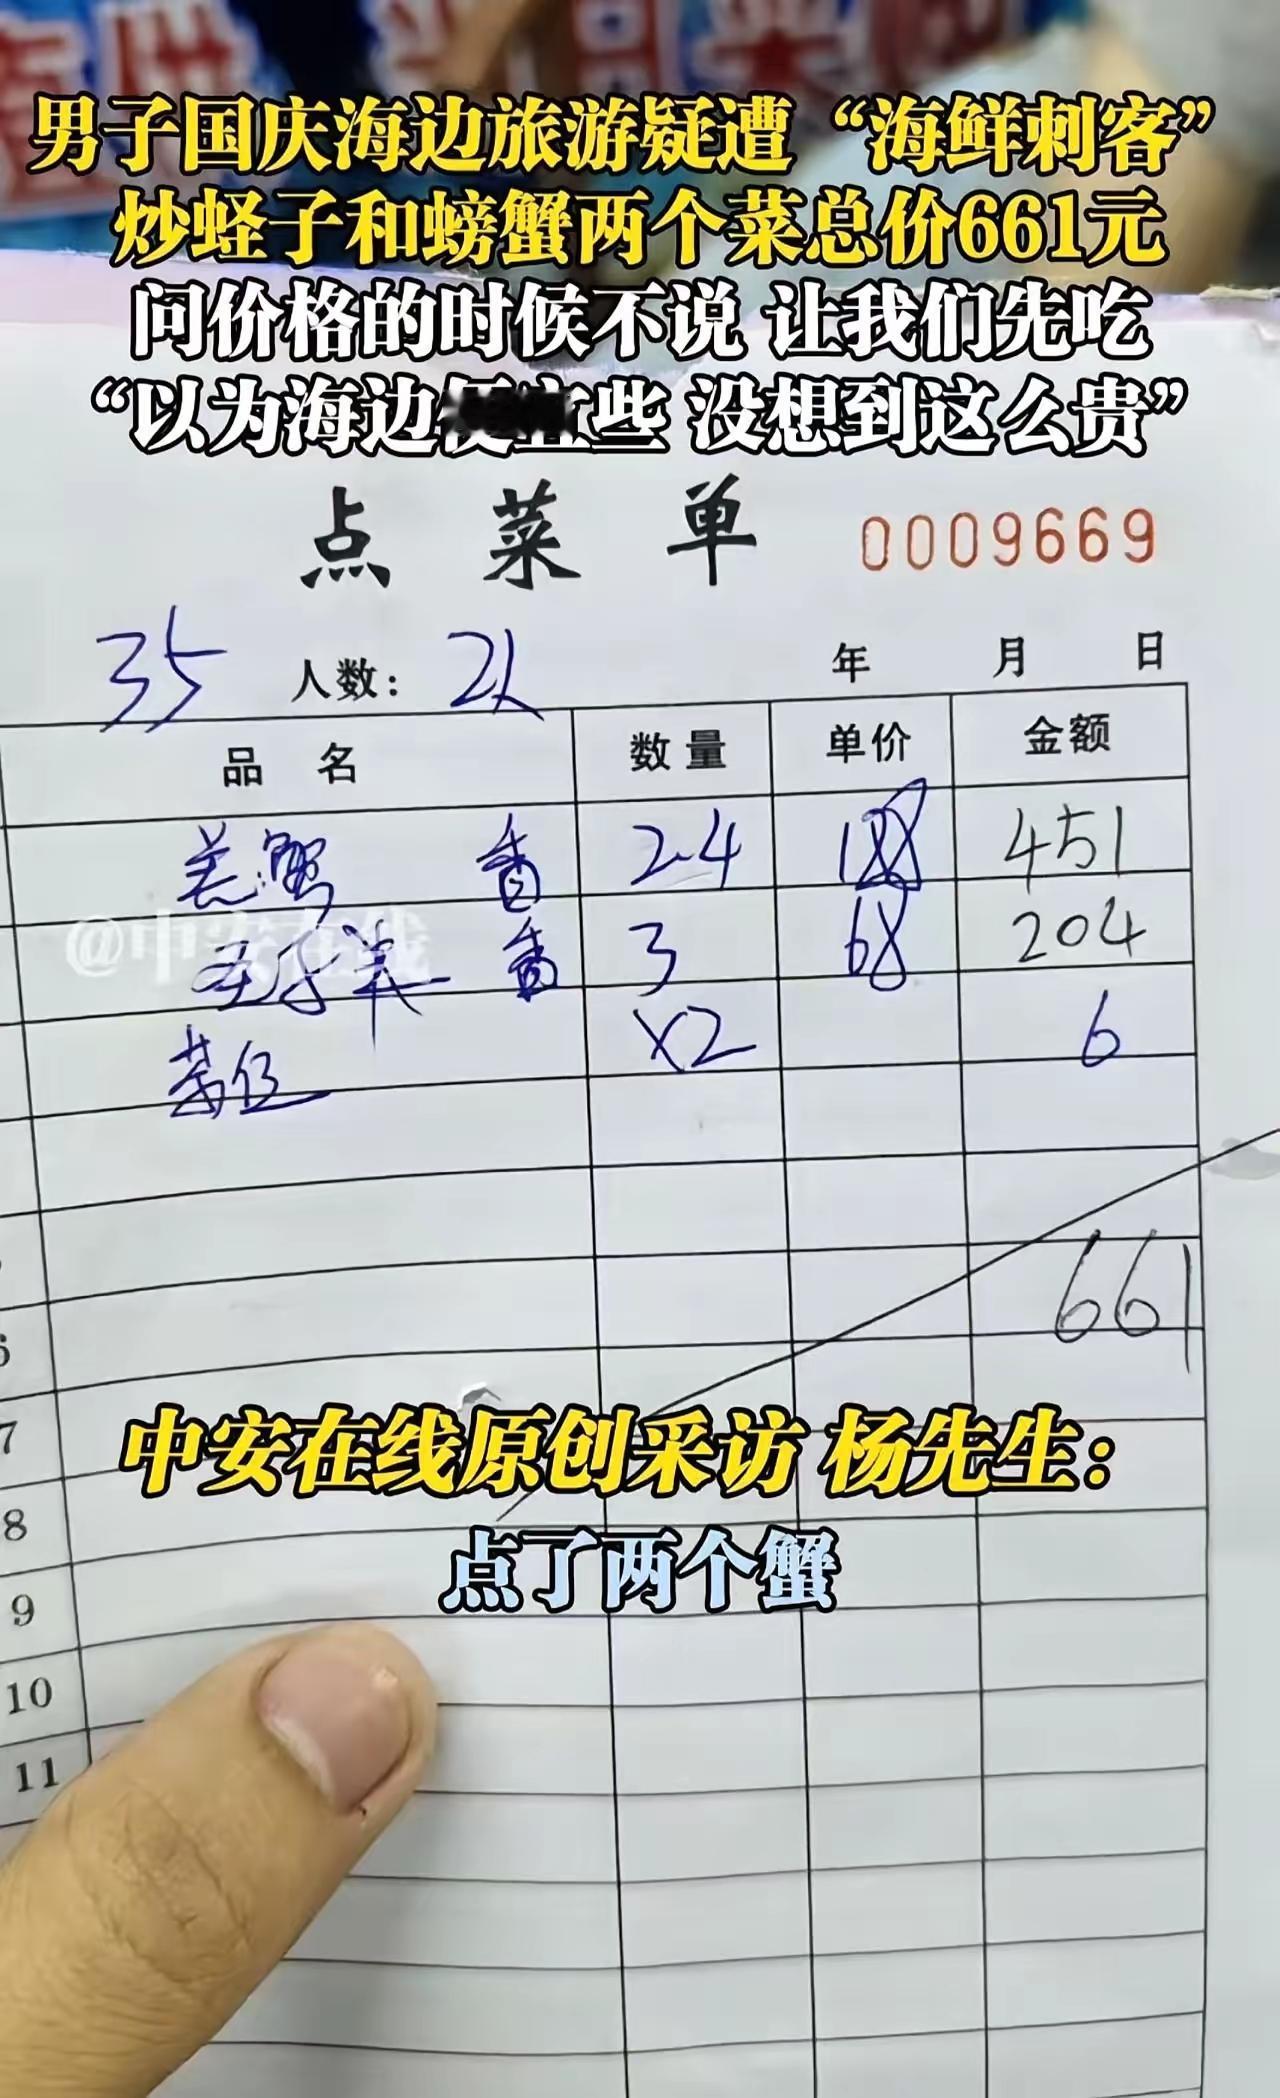 男子国庆海边旅游疑遭“海鲜刺客”
炒蛏子和螃蟹两个菜总价661元
问价格的时候不说 让我们先吃
“以为海边便宜些 没想到这么贵”
点菜单 0009669
35 人数： 2人 年 月 日
品名 数量 单价 金额
羔蟹 2.4 188 451
@中安在线
3 68 204
茶位 x2 6
661
6
7
中安在线原创采访 杨先生：
8
点了两个蟹
9
10
11